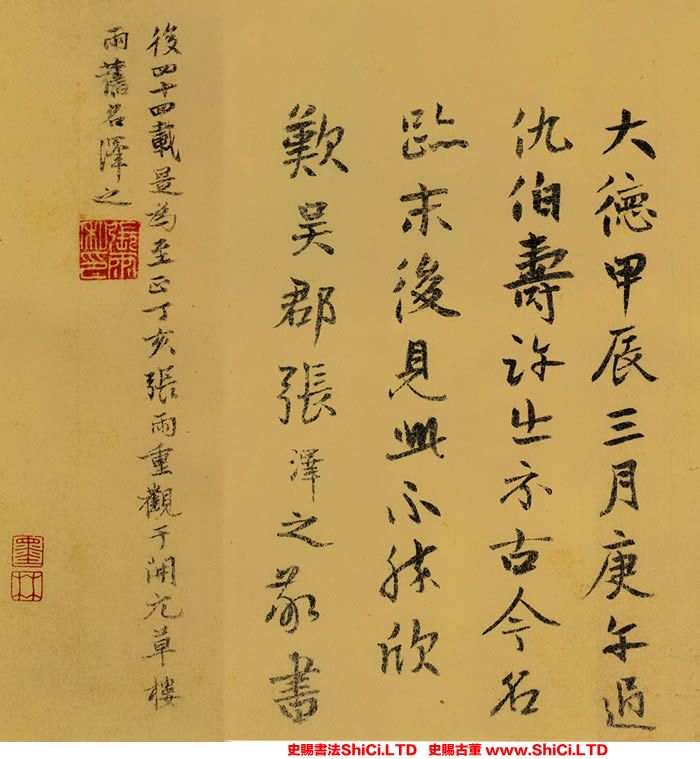 大德甲辰三月庚午過
仇伯壽許出示古今名
跡末後見此不勝欣
歎吳郡張澤之敬書
後四十四載是為至正丁亥張雨重觀于開元草樓
雨舊名澤之
張雨私印
墨林
史賜書法ShiCi.LTD 史賜古董 www.ShiCi.LTD